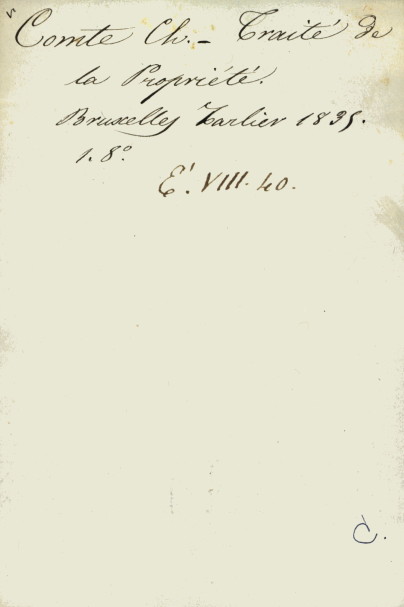 Comte Ch. - Traité de
la Propriété.
Bruxelles Tarlier 1835.
1. 8°.
É. VIII. 40.
C.